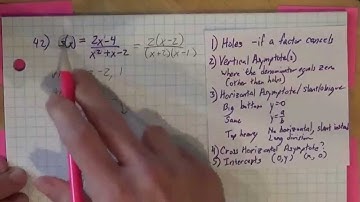 42) s(x) = 2x-4 / x²+x-2 = 2(x-2) / (x+2)(x-1)
-2, 1
1) Holes - if a factor cancels
2) Vertical Asymptote(s)
where the denominator equals zero
(other than holes)
3) Horizontal Asymptote/slant/oblique
Big bottom y=0
Same y=a/b
Top heavy No horizontal, slant instead
Long division
4) Cross Horizontal Asymptote?
5) Intercepts (0,y) (x,0)